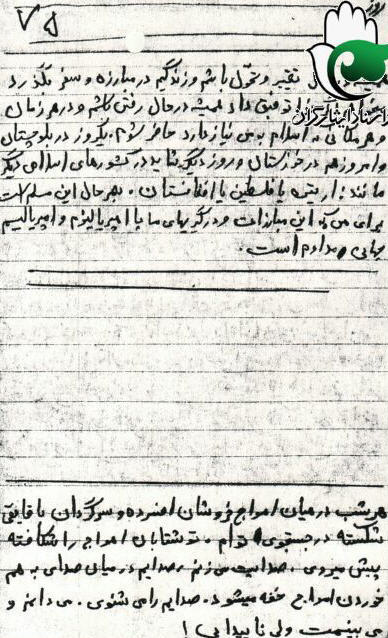 روز
۷۵
تغییر و تحول باشم و زندگیم در مبارزه و سفر بگذرد
توفیق داد همیشه در حال رفتن باشم و در هر زمان
و هر مکانی که اسلام به من نیاز دارد حاضر شوم. یکروز در بلوچستان
و امروز هم در خوزستان و روز دیگر شاید در کشورهای اسلامی دیگر
مانند: اریتره یا فلسطین یا افغانستان. بهر حال این مسلم است
برای من که این مبارزات و درگیریهای ما با امپریالیزم و امپریالیسم
جهانی مداوم است.
هر شب در میان امواج خروشان افسرده و سرگردان با قایقی
شکسته در جستجوی توام. تو شتابان امواج را شکافته
پیش میروی. صدایت می‌زنم، صدایم در میان صدای به هم
خوردن امواج خفه میشود. صدایم را می شنوی. می دانم و
می بینمت ولی ناپیدایی!